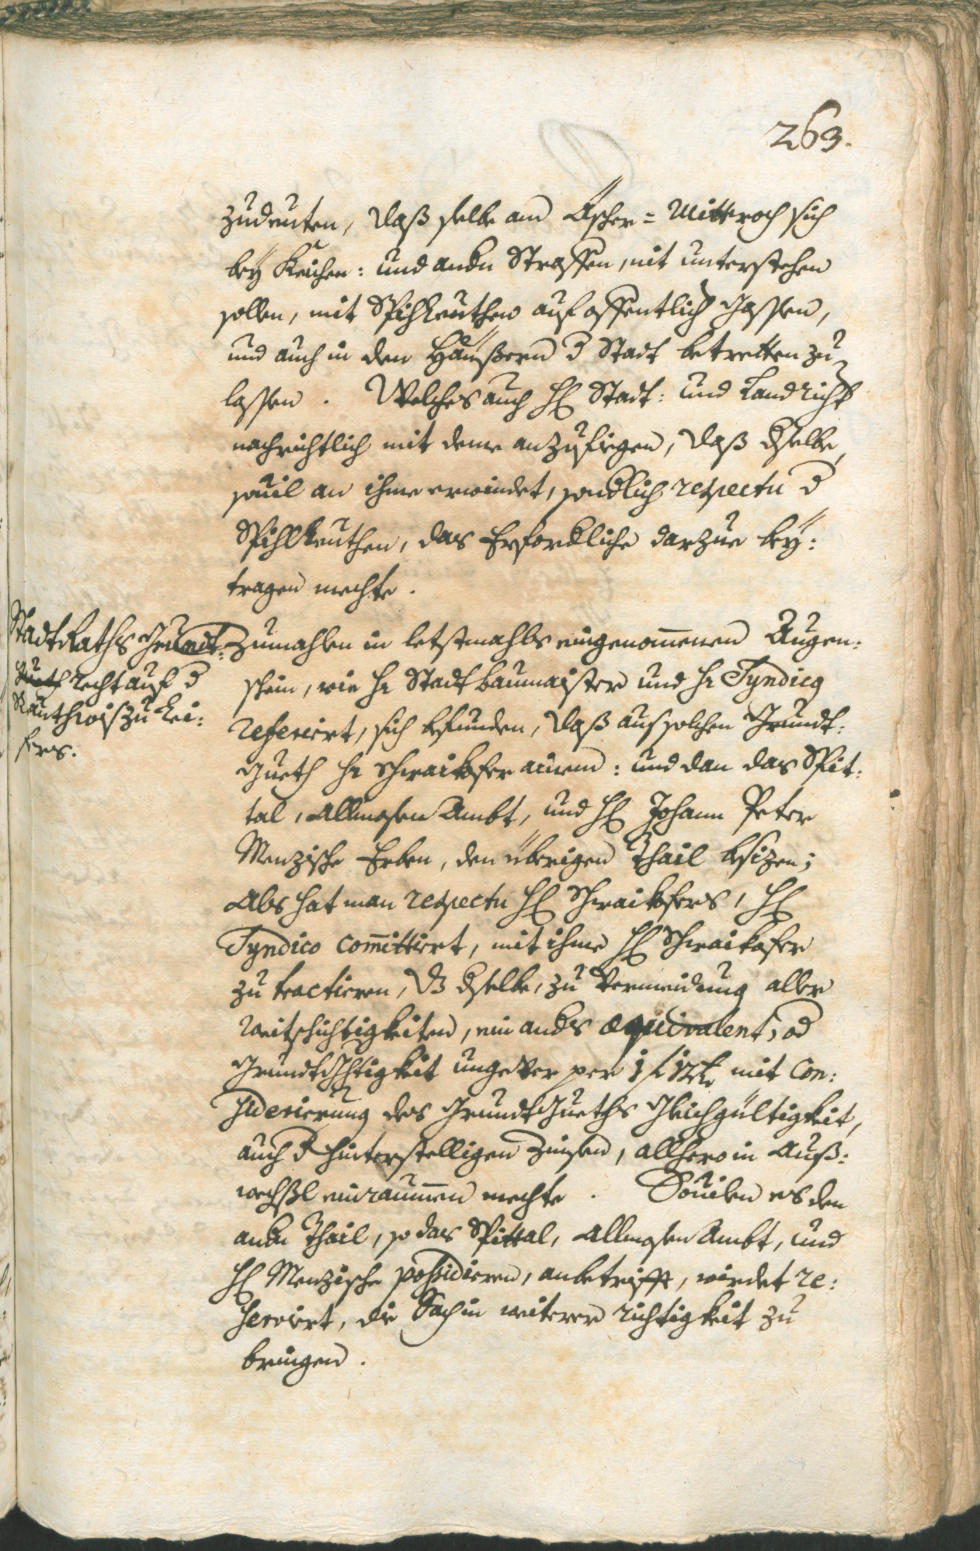 263.
zudeuten, daß selbe am Ascher-Mittwoch sich
bey Leichen: und andn Strassen, nit unterstehen
sollen, mit Spihlleuthen auf offentlich Gassen,
und auch in den Heüßern d Statt betretten zu
lassen. Welches auch H Statt: und Landricht
nachrichtlich mit deme anzufiegen, daß dselbe,
souil an ihme erwindet, sondlich respectu d
Spihlleuthen, das Erfordliche darzue bey:
tragen mechte.
StadtRaths Grundt-
recht auf d
Rauthwis zu Lei:
fers.
Zumahlen in letstmahls eingenommenen Augen:
schein, wie H Statt baumaister und H Syndicq
referiert, sich befunden, daß auf solchen Grundt-
Gueth H Schraikofer ainem: und dan das Spit:
tal, Allmosen Ambt, und H Johann Peter
Menzische Erben, den überigen Thail besizen;
Als hat man respectu H Schraikofers, H
Syndico committiert, mit ihme H Schraikofer
zu tractieren, dß dselbe, zu Vermeidung aller
Weitschichtigkeiten, ein ands æquivalent; od
Grundtgchtigkeit ungever per 1 f 12 x mit Con:
siderierung des Grundt Gueths Gleichgültigkeit,
auch d hinterstelligen Zinsen, allhero in Auß:
wechßl einraummen mechte. Souilen es den
andn Thail, so das Spittal, Allmosen Ambt, und
H Menzische possidieren, anbetrifft, wirdet re:
serviert, die Sach in weiterer richtigkeit zu
bringen.